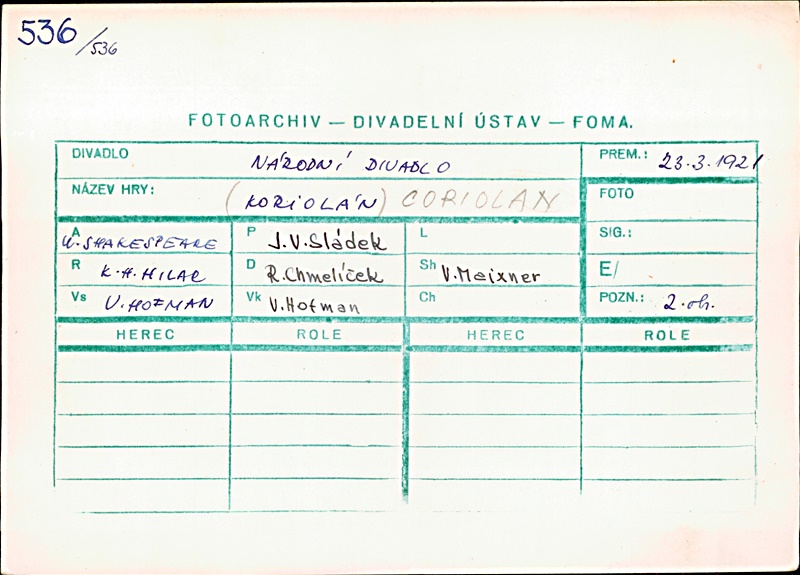 536/536
FOTOARCHIV — DIVADELNÍ ÚSTAV — FOMA.
DIVADLO NÁRODNÍ DIVADLO PREM.: 23.3.1921
NÁZEV HRY: (KORIOLÁN) CORIOLAN FOTO
A W. SHAKESPEARE P J.V. Sládek L SIG.:
R K.H. HILAR D R. Chmelíček Sh V. Meixner E/
Vs V. HOFMAN Vk V. Hofman Ch POZN.: 2. oh.
HEREC ROLE HEREC ROLE